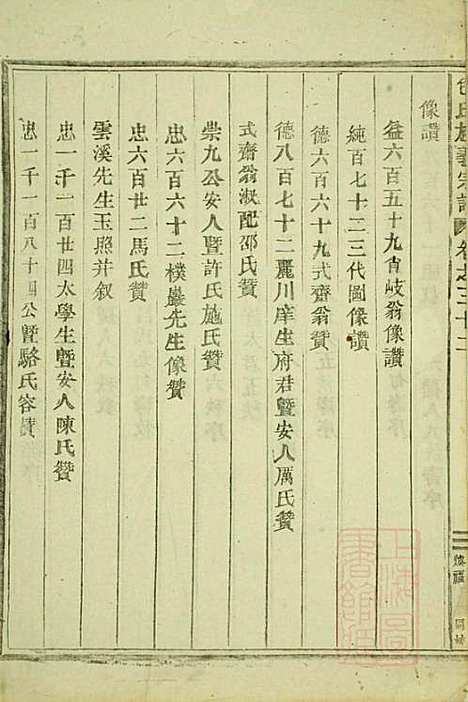 像讚
益六百五十九肖岐翁像讚
純百七十二三代圖像讚
德六百六十九式齋翁贊
德八百七十二麗川庠生府君暨安人厲氏贊
式齋翁淑配邵氏贊
崇九公安人暨許氏施氏贊
忠六百六十二樸巖先生像贊
忠六百廿二馬氏贊
雲溪先生玉照并叙
忠一千一百廿四太學生暨安人陳氏贊
忠一千一百八十四公暨駱氏容贊
上海圖書館藏